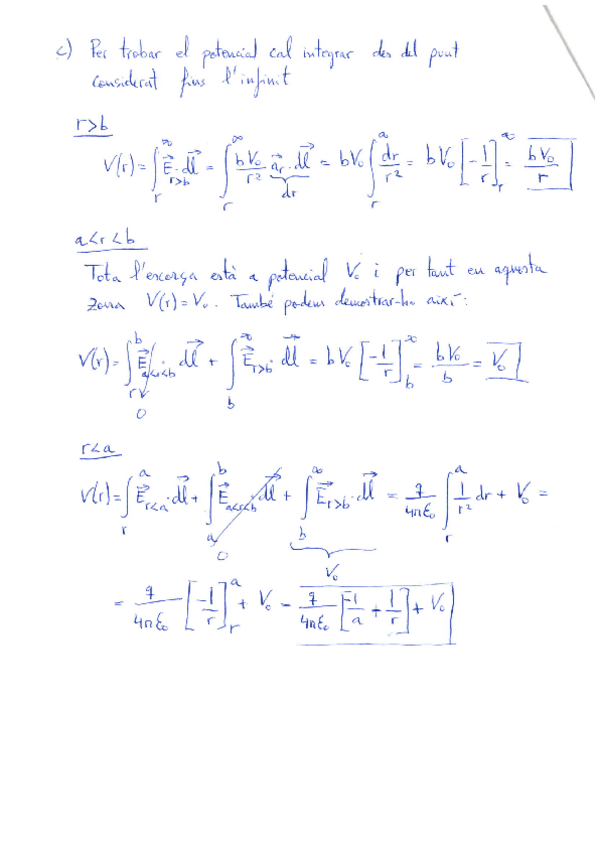 c) Per trobar el potencial cal integrar des del punt
considerat fins l'infinit
r>b
V(r) = ∫_r^∞ E⃗_{r>b} · dl⃗ = ∫_r^∞ bV₀/r² a⃗_r · dl⃗ (dr) = bV₀ ∫_r^∞ dr/r² = bV₀ [-1/r]_r^∞ = bV₀/r
a<r<b
Tota l'escorça està a potencial V₀ i per tant en aquesta
zona V(r) = V₀. També podem demostrar-ho així:
V(r) = ∫_r^b E⃗_{a<r<b} · dl⃗ (0) + ∫_b^∞ E⃗_{r>b} · dl⃗ = bV₀ [-1/r]_b^∞ = bV₀/b = V₀
r<a
V(r) = ∫_r^a E⃗_{r<a} · dl⃗ + ∫_a^b E⃗_{a<r<b} · dl⃗ (0) + ∫_b^∞ E⃗_{r>b} · dl⃗ (V₀) = q/4πε₀ ∫_r^a 1/r² dr + V₀ =
= q/4πε₀ [-1/r]_r^a + V₀ = q/4πε₀ [-1/a + 1/r] + V₀